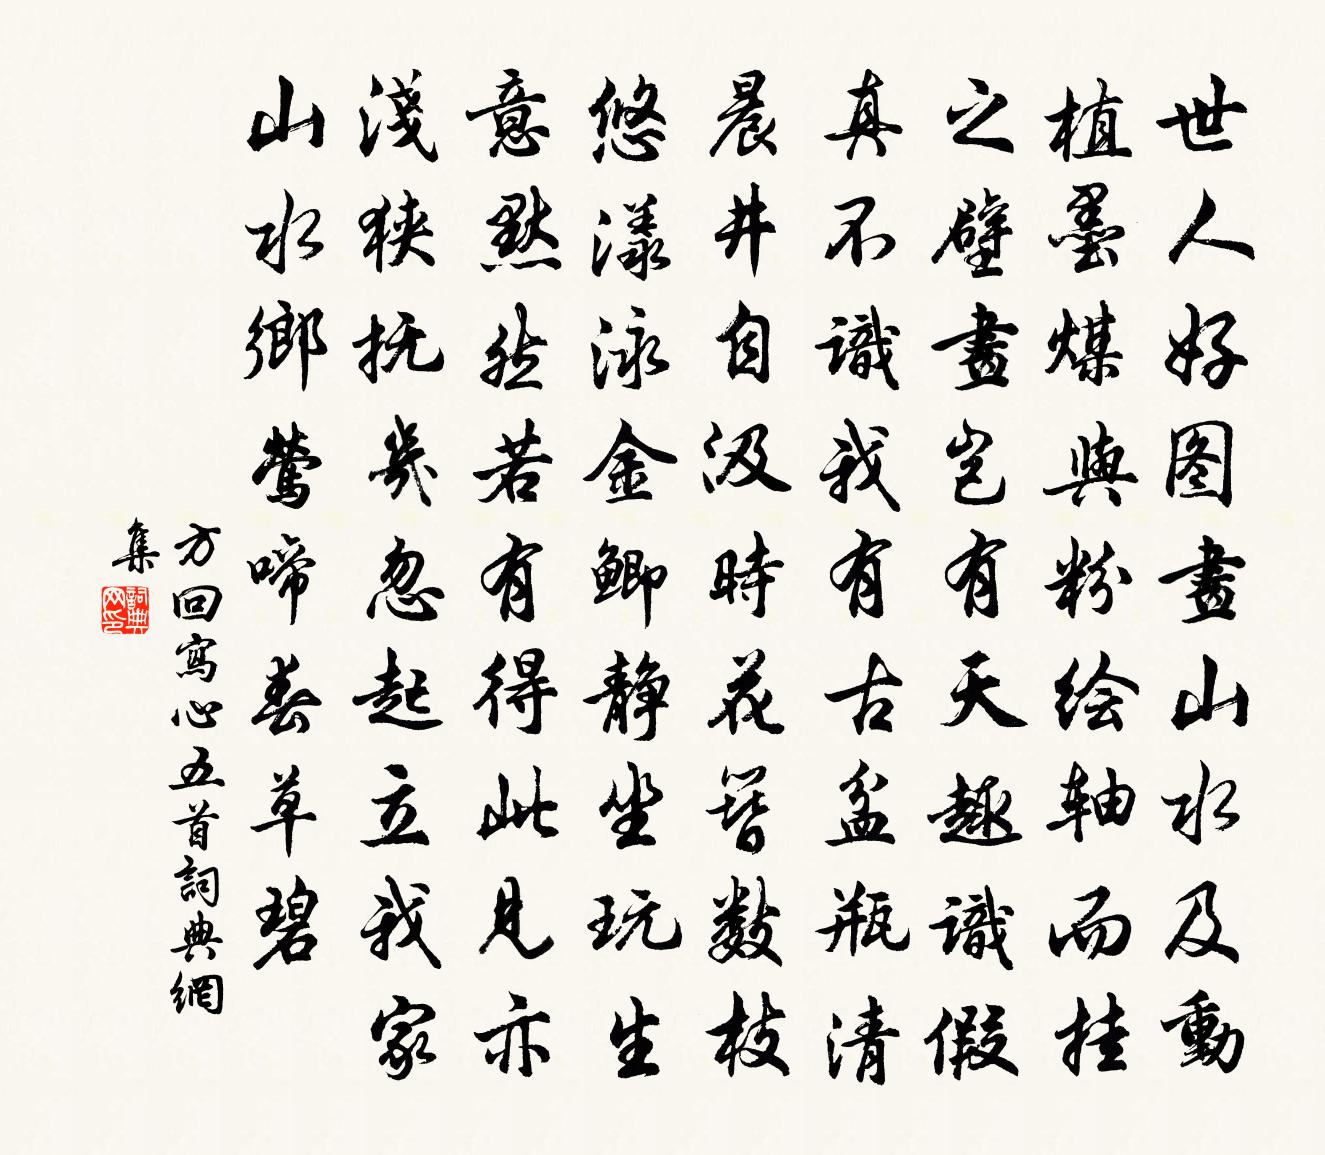 世人好图畫山水及動
植墨煤與粉绘轴而挂
之壁畫岂有天趣識假
真不識我有古盆瓶清
晨井自汲時花簪数枝
悠漾泳金鲫静坐玩生
意黙然若有得此见亦
淺狹抚几忽起立我家
山水鄉鶯啼春草碧
方回寫心五首詞典網
集
詞典
网印